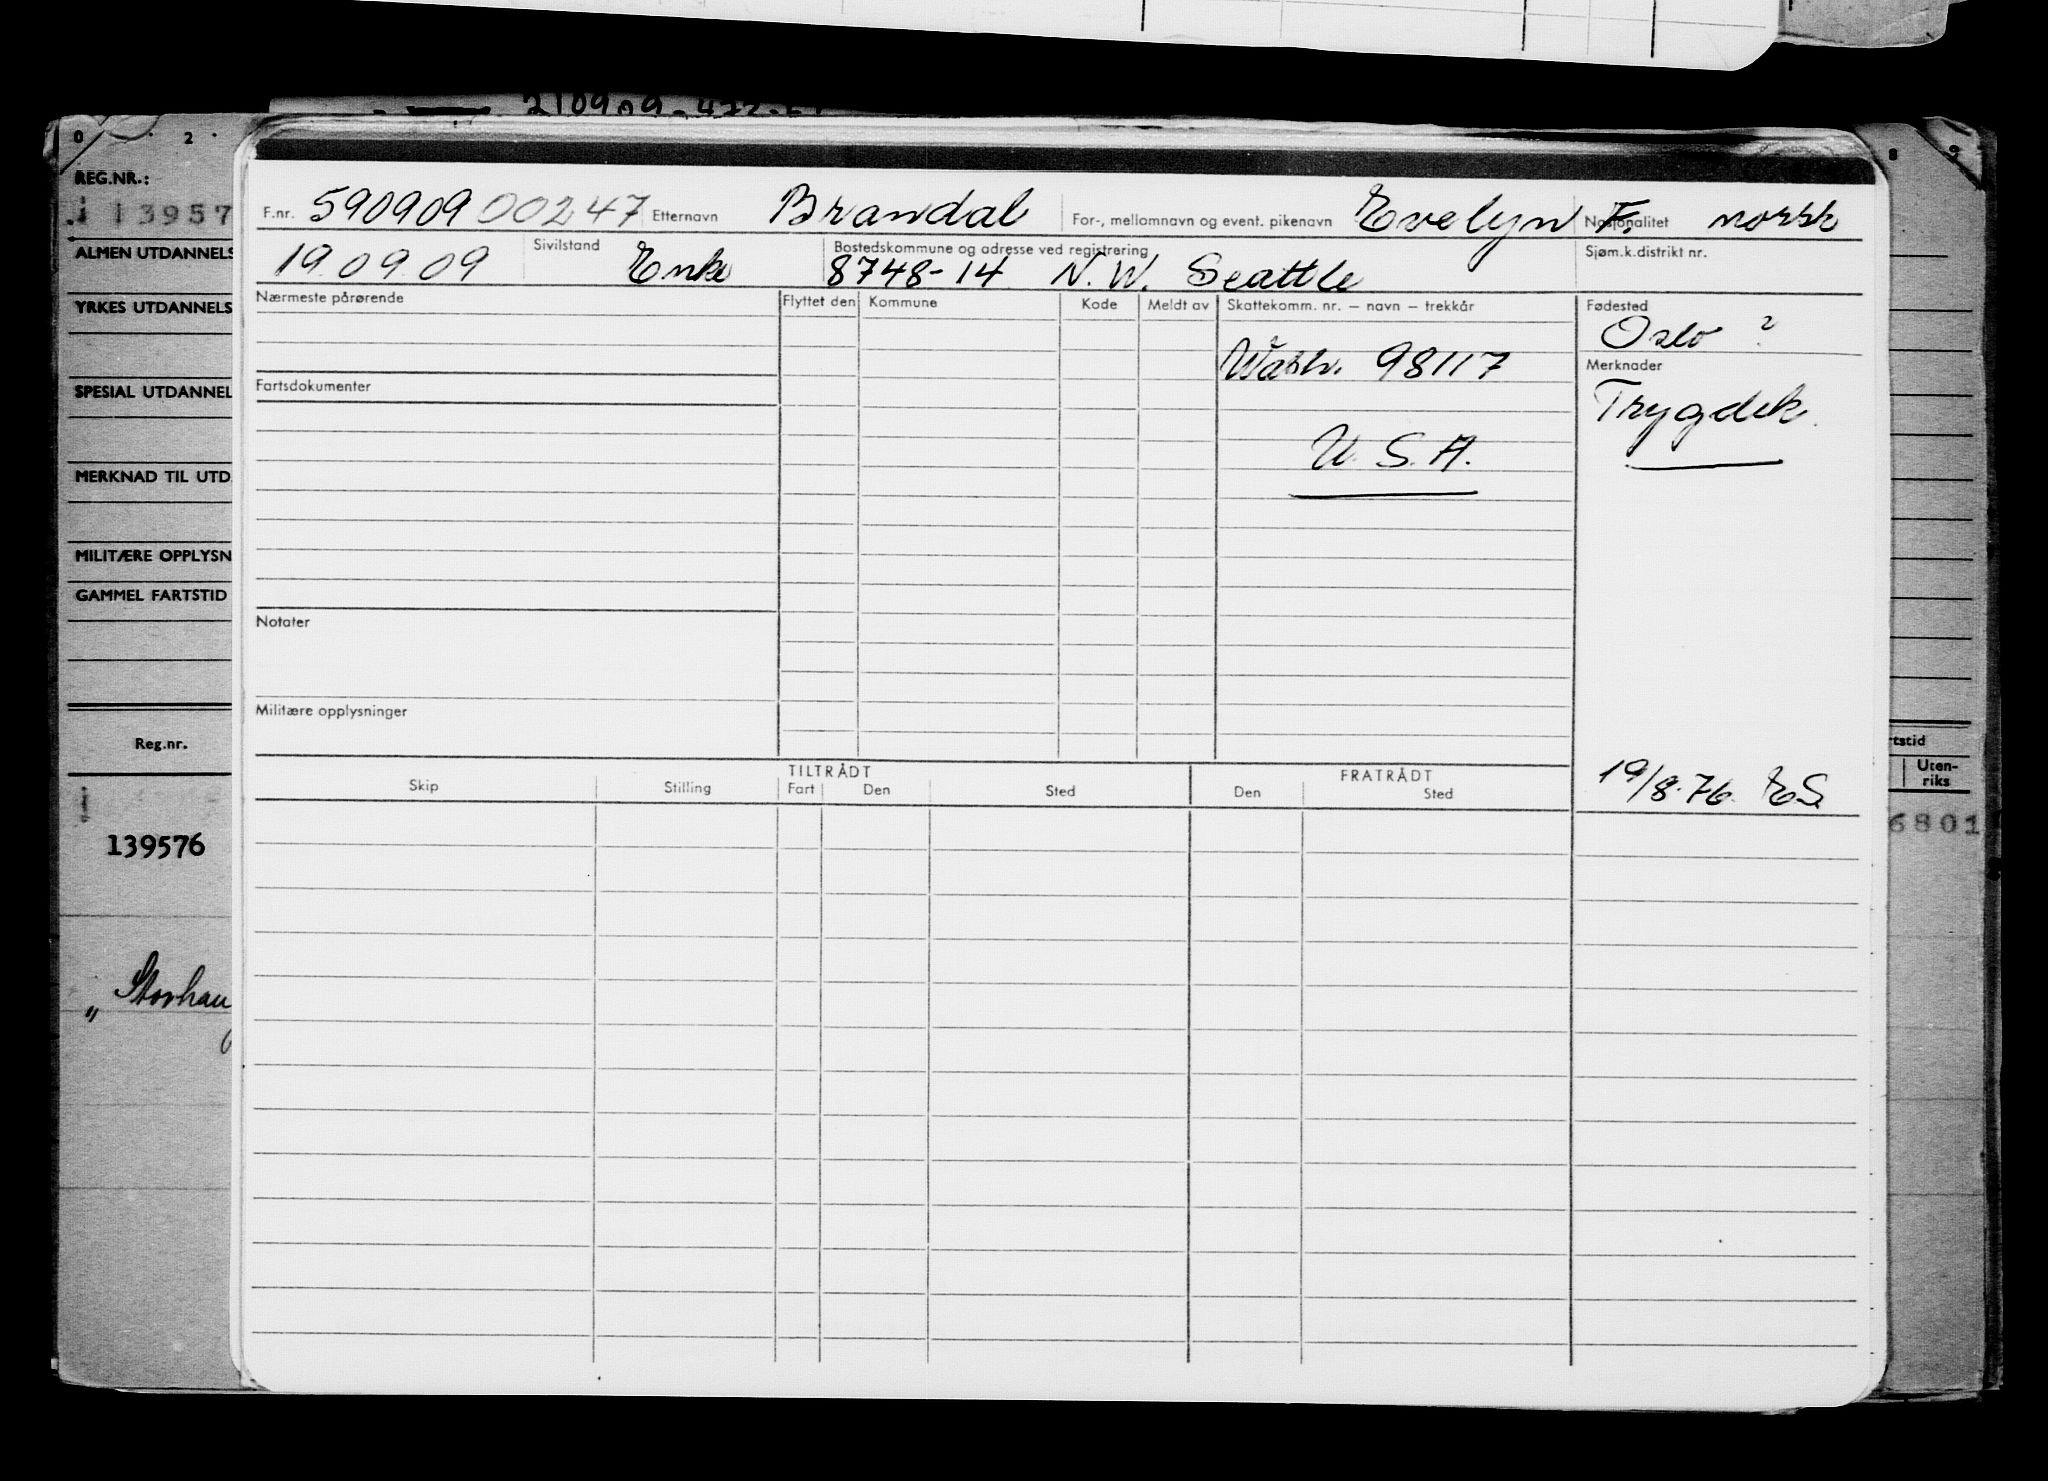 210909-472-
0 . 2 .
8 9
REG.NR.:
13957
ALMEN UTDANNELS
YRKES UTDANNELS
SPESIAL UTDANNEL
MERKNAD TIL UTD
MILITÆRE OPPLYSN
GAMMEL FARTSTID
Reg.nr.
139576
" Storhau
rtstid
Uten-
riks
6801
F.nr. 590909 00247 Etternavn Brandal For-, mellomnavn og event. pikenavn Evelyn F. Nasjonalitet norsk
19.09.09 Sivilstand Enke Bostedskommune og adresse ved registrering 8748-14 N.W. Seattle Sjøm.k.distrikt nr.
Nærmeste pårørende Flyttet den Kommune Kode Meldt av Skattekomm. nr. – navn – trekkår Fødested
Oslo ?
Wash. 98117 Merknader
Fartsdokumenter
Trygdek.
U.S.A.
Notater
Militære opplysninger
TILTRÅDT FRATRÅDT
Skip Stilling Fart Den Sted Den Sted
19/8.76. ES